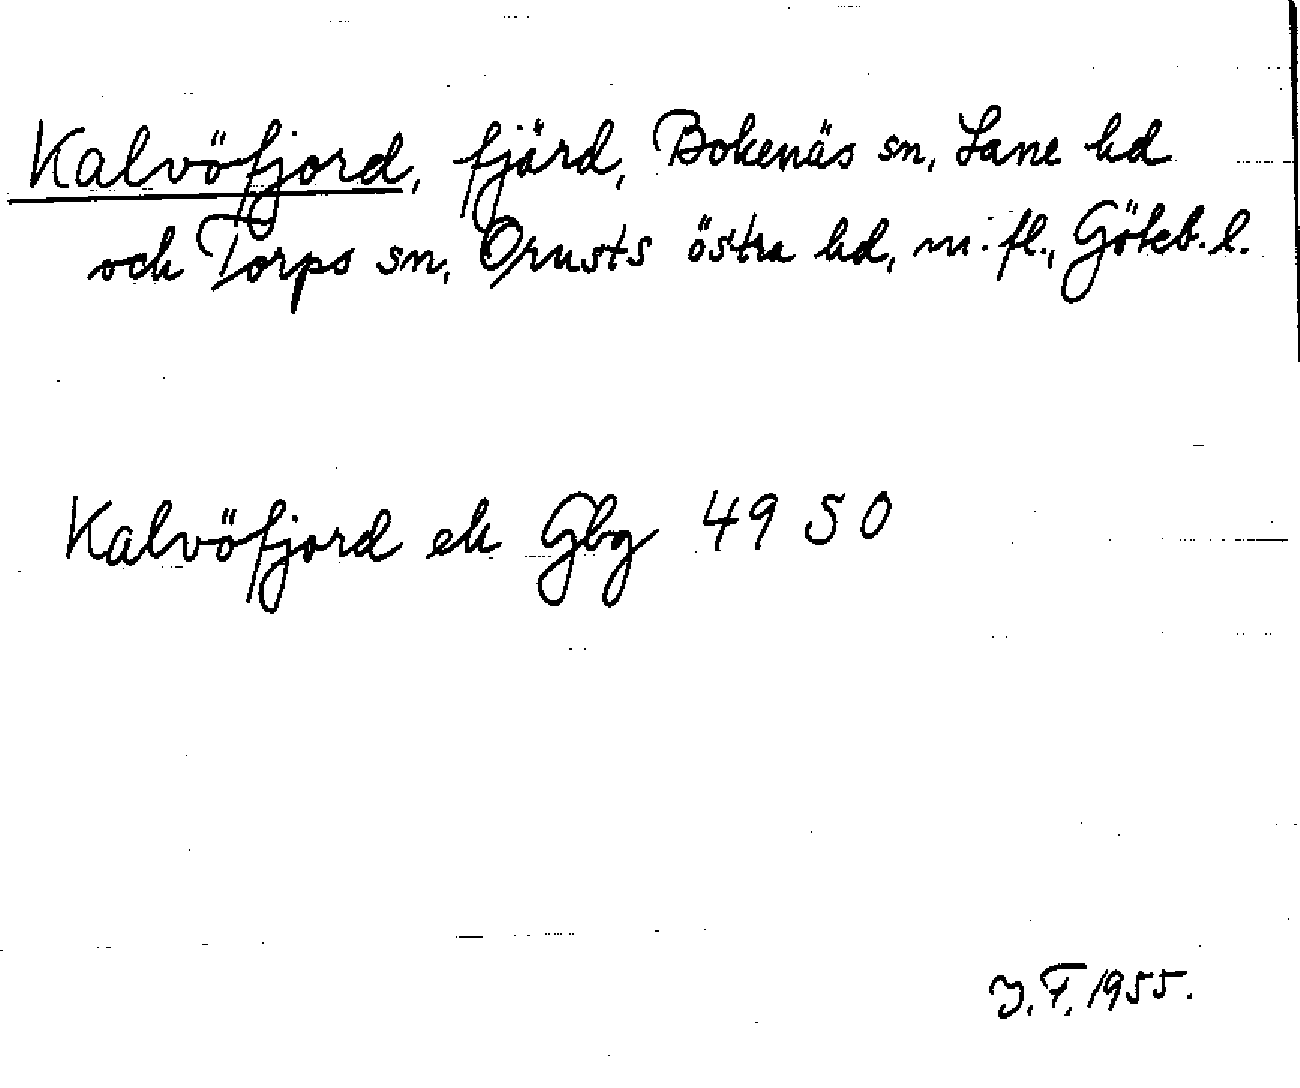 Kalvöfjord, fjärd, Bokenäs sn, Lane hd
och Torps sn, Orusts östra hd, m. fl., Göteb. l.
Kalvöfjord ek Gbg 49 50
J. F. 1955.